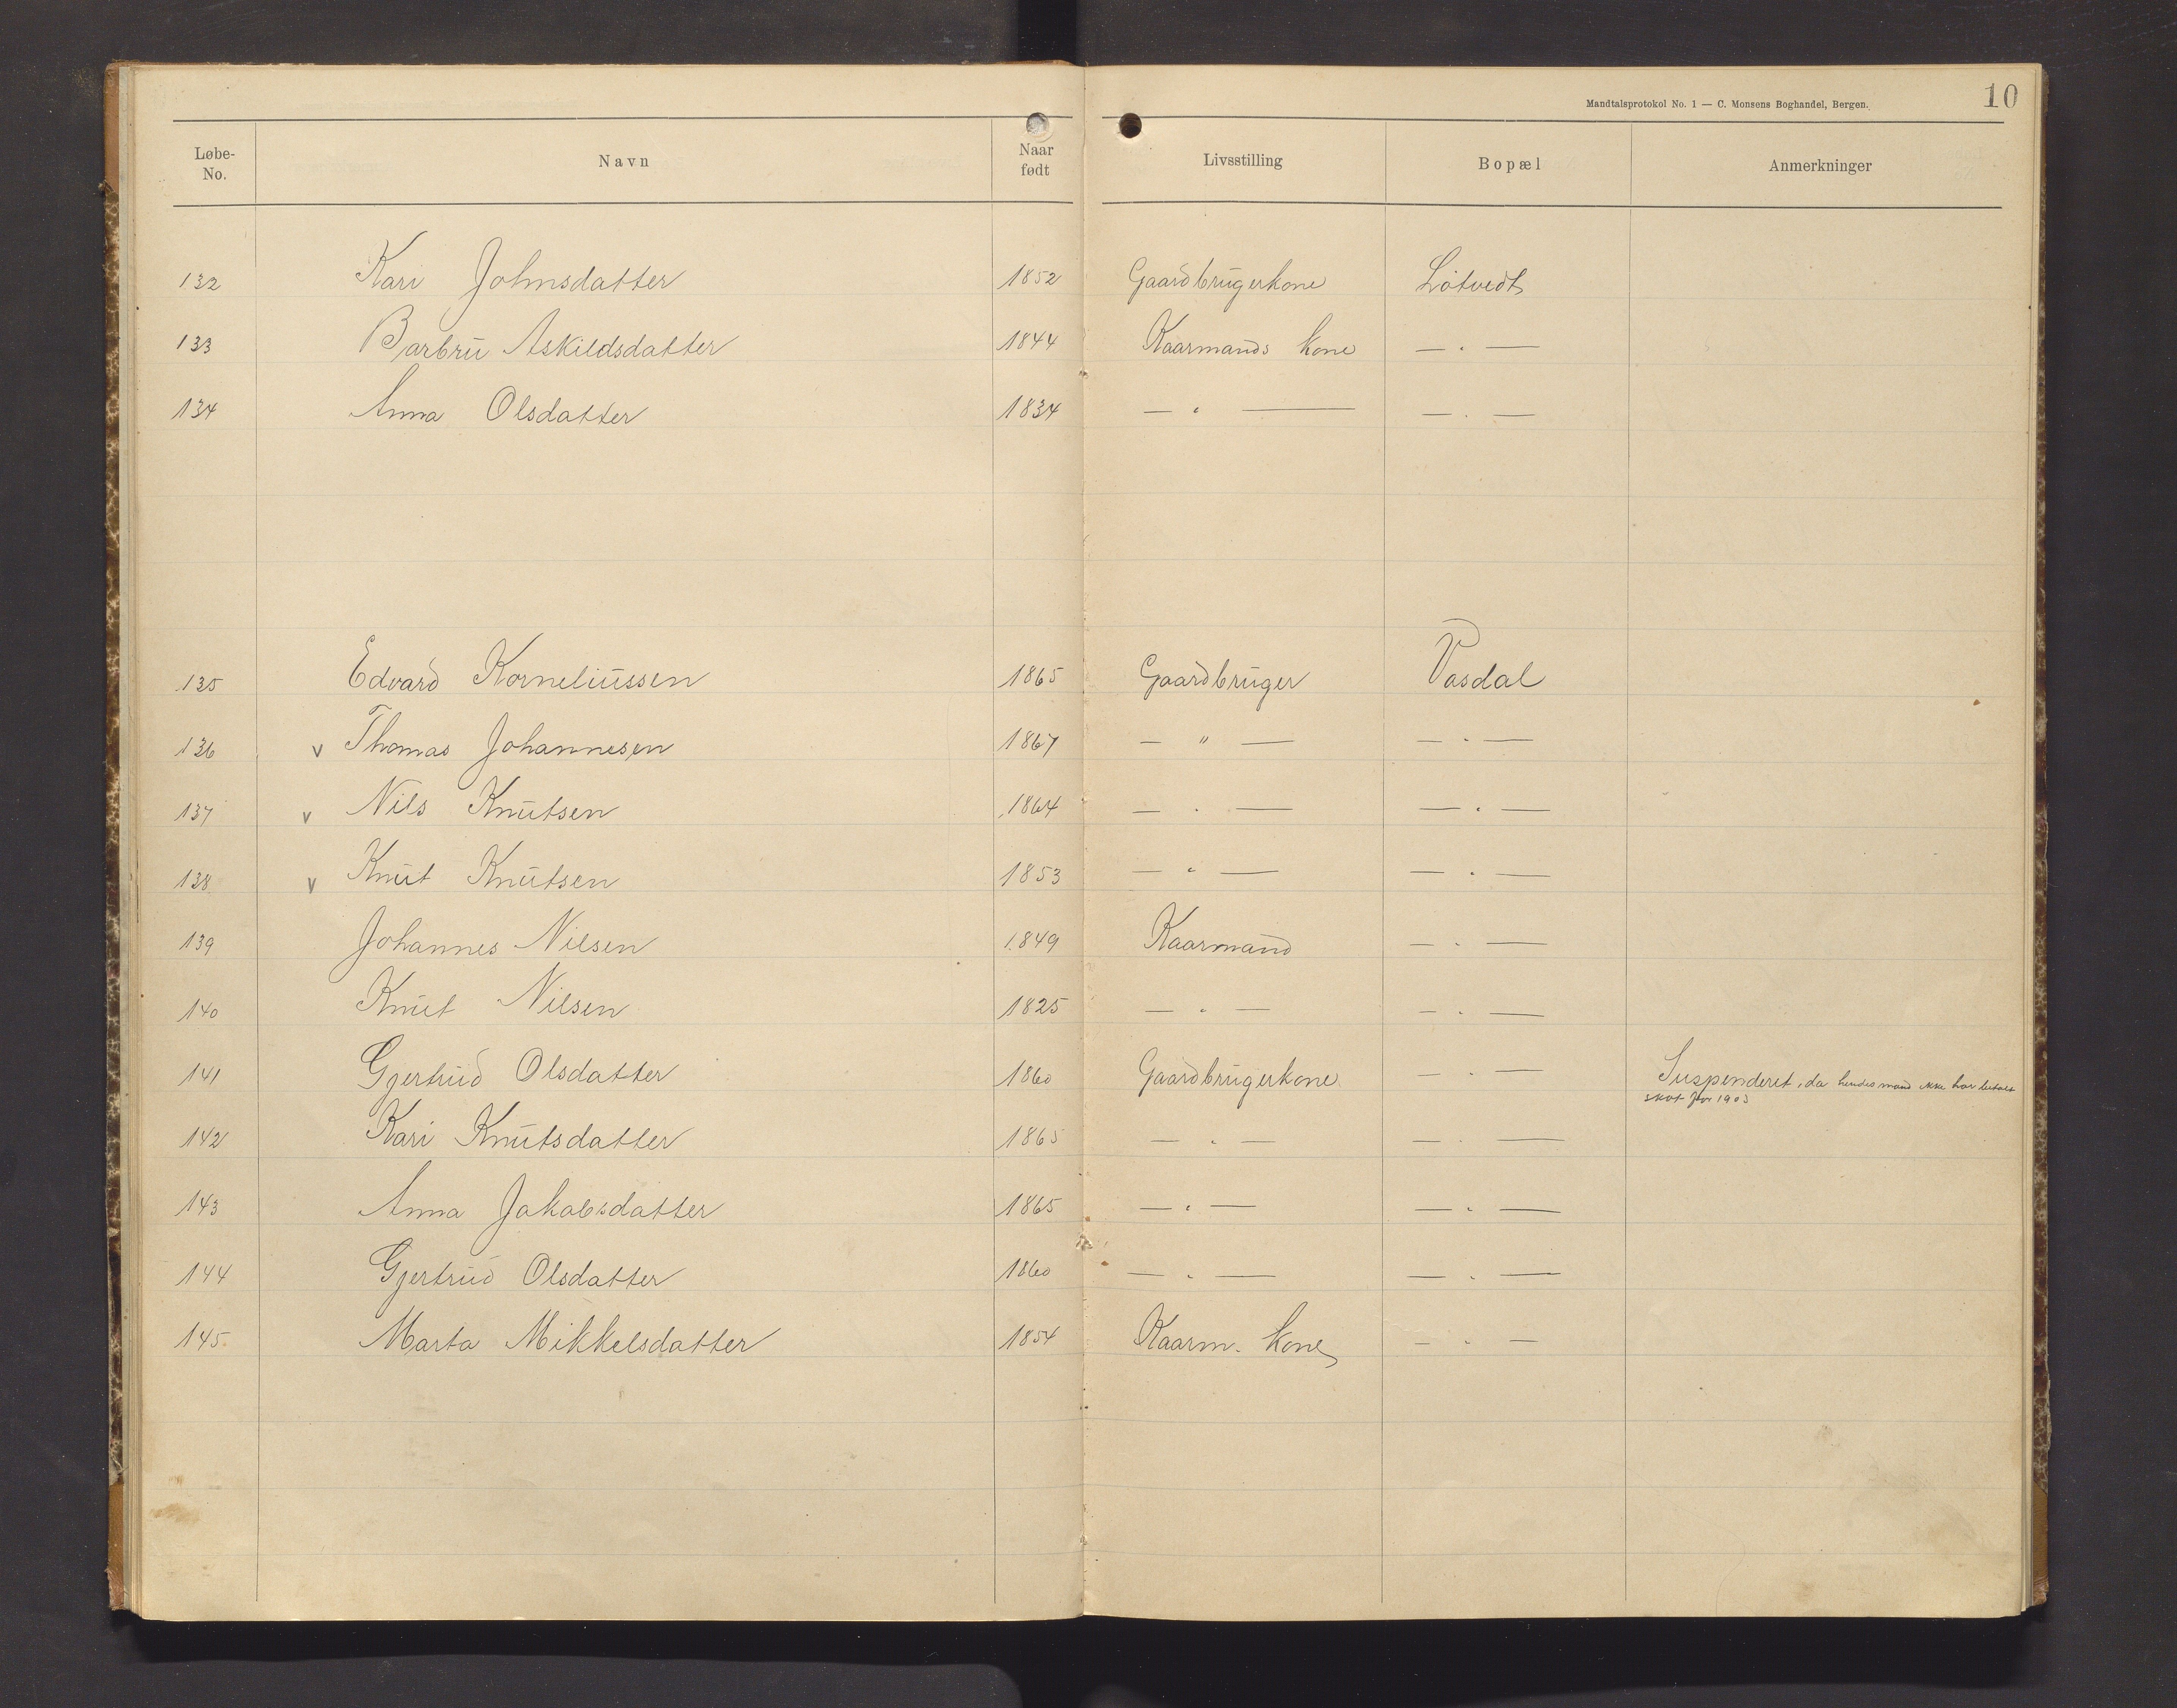 Mandtalsprotokol No. 1 — C. Monsens Boghandel, Bergen. 10
Løbe-No. Navn Naar født Livsstilling Bopæl Anmerkninger
132 Kari Johnsdatter 1852 Gaardbrugerkone Løtvedt
133 Barbru Askildsdatter 1844 Kaarmands kone — " —
134 Anna Olsdatter 1834 — " — — " —
135 Edvard Korneliussen 1865 Gaardbruger Vasdal
136 v Thomas Johannesen 1867 — " — — " —
137 v Nils Knutsen 1864 — " — — " —
138 v Knut Knutsen 1853 — " — — " —
139 Johannes Nilsen 1849 Kaarmand — " —
140 Knut Nilsen 1825 — " — — " —
141 Gjertrud Olsdatter 1860 Gaardbrugerkone — " — Suspenderet, da hendes mand ikke har betalt
skat for 1903
142 Kari Knutsdatter 1865 — " — — " —
143 Anna Jakobsdatter 1865 — " — — " —
144 Gjertrud Olsdatter 1860 — " — — " —
145 Marta Mikkelsdatter 1854 Kaarm. kone — " —